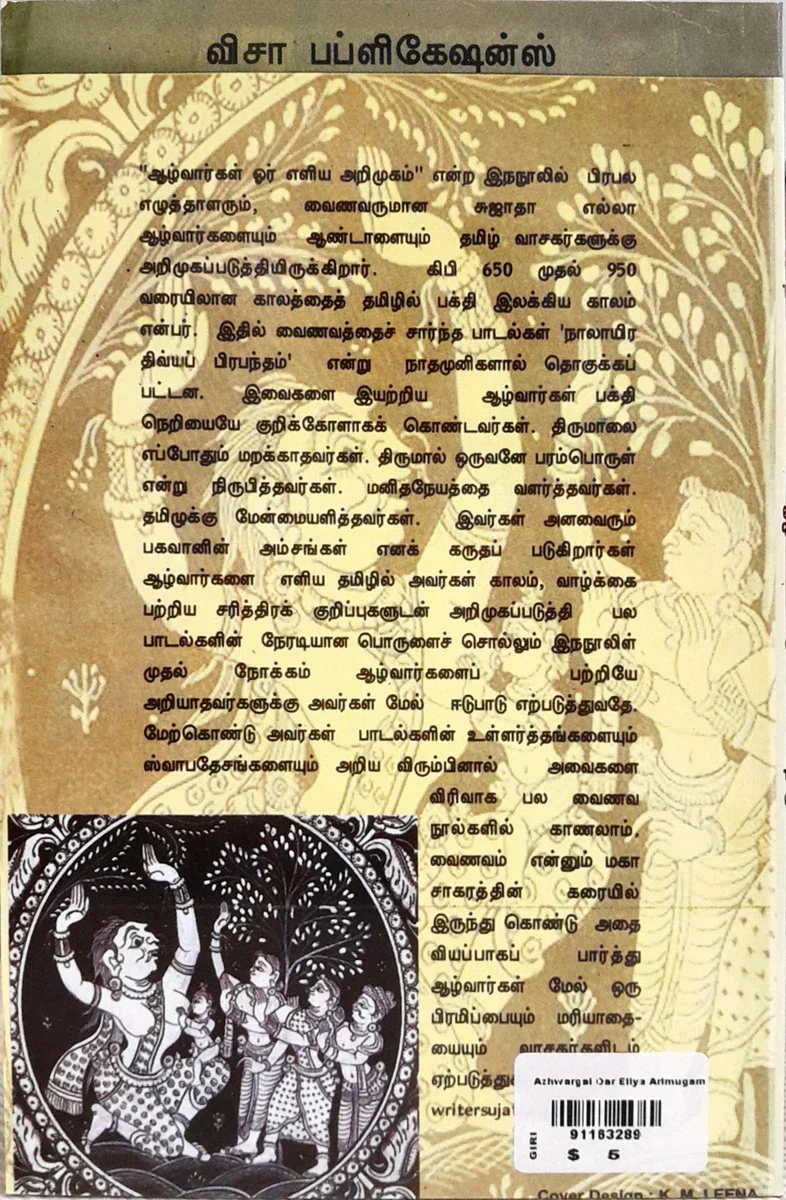 விசா பப்ளிகேஷன்ஸ்
"ஆழ்வார்கள் ஓர் எளிய அறிமுகம்" என்ற இநநூலில் பிரபல
எழுத்தாளரும், வைணவருமான சுஜாதா எல்லா
ஆழ்வார்களையும் ஆண்டாளையும் தமிழ் வாசகர்களுக்கு
அறிமுகப்படுத்தியிருக்கிறார். கிபி 650 முதல் 950
வரையிலான காலத்தைத் தமிழில் பக்தி இலக்கிய காலம்
என்பர். இதில் வைணவத்தைச் சார்ந்த பாடல்கள் 'நாலாயிர
திவ்யப் பிரபந்தம்' என்று நாதமுனிகளால் தொகுக்கப்
பட்டன. இவைகளை இயற்றிய ஆழ்வார்கள் பக்தி
நெறியையே குறிக்கோளாகக் கொண்டவர்கள். திருமாலை
எப்போதும் மறக்காதவர்கள். திருமால் ஒருவனே பரம்பொருள்
என்று நிருபித்தவர்கள். மனிதநேயத்தை வளர்த்தவர்கள்.
தமிழுக்கு மேன்மையளித்தவர்கள். இவர்கள் அனவைரும்
பகவானின் அம்சங்கள் எனக் கருதப் படுகிறார்கள்
ஆழ்வார்களை எளிய தமிழில் அவர்கள் காலம், வாழ்க்கை
பற்றிய சரித்திரக் குறிப்புகளுடன் அறிமுகப்படுத்தி பல
பாடல்களின் நேரடியான பொருளைச் சொல்லும் இநநூலிள்
முதல் நோக்கம் ஆழ்வார்களைப் பற்றியே
அறியாதவர்களுக்கு அவர்கள் மேல் ஈடுபாடு எற்படுத்துவதே.
மேற்கொண்டு அவர்கள் பாடல்களின் உள்ளர்த்தங்களையும்
ஸ்வாபதேசங்களையும் அறிய விரும்பினால் அவைகளை
விரிவாக பல வைணவ
நூல்களில் காணலாம்.
வைணவம் என்னும் மகா
சாகரத்தின் கரையில்
இருந்து கொண்டு அதை
வியப்பாகப் பார்த்து
ஆழ்வார்கள் மேல் ஒரு
பிரமிப்பையும் மரியாதை-
யையும் வாசகர்களிடம்
Azhwargal Oar Eliya Arimugam
GIRI
91163289
$ 5
Cover Design : K. M. LEENA